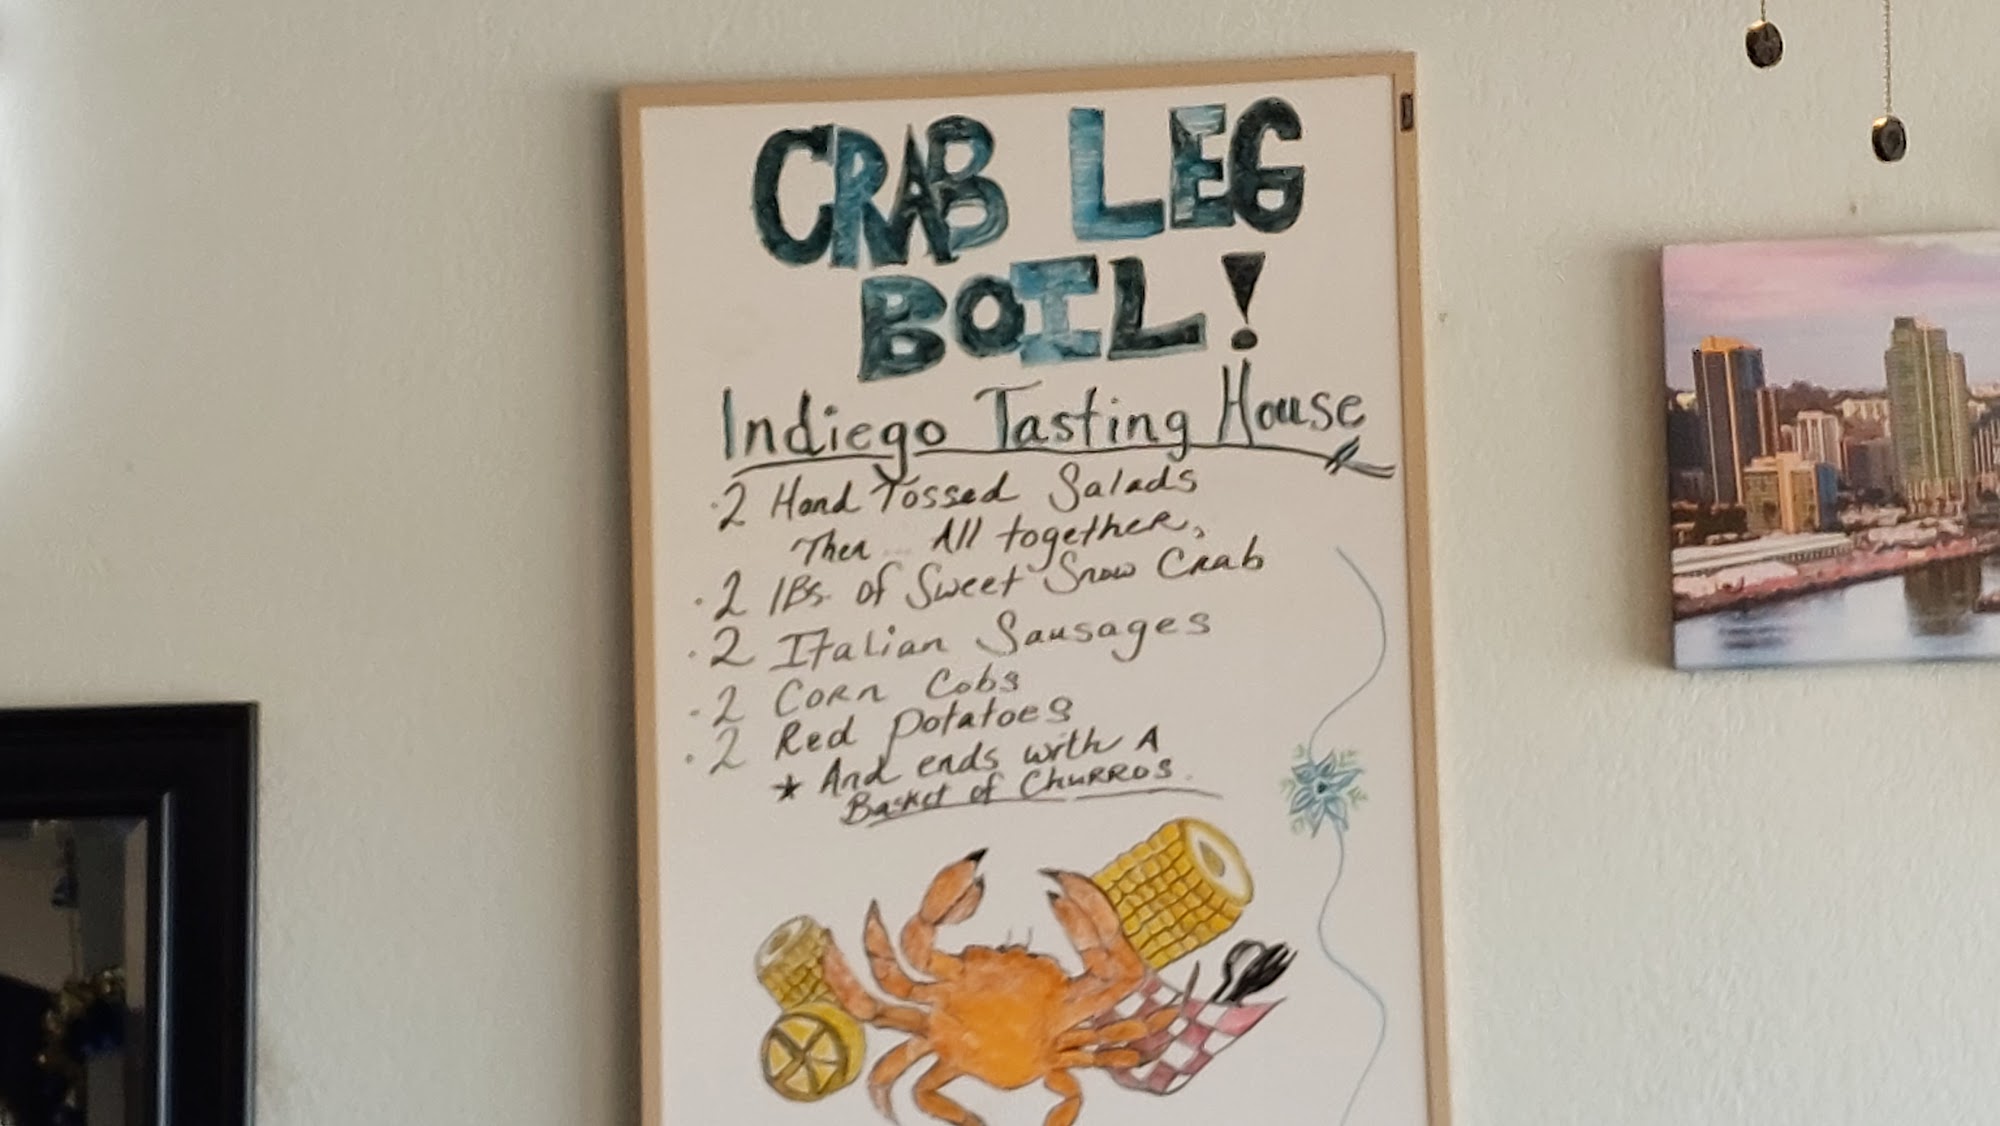 CRAB LEG
BOIL!
Indiego Tasting House
·2 Hand Tossed Salads
Then... All together,
·2 lBs. of Sweet Snow Crab
·2 Italian Sausages
·2 Corn Cobs
·2 Red Potatoes
* And ends with A
Basket of Churros.